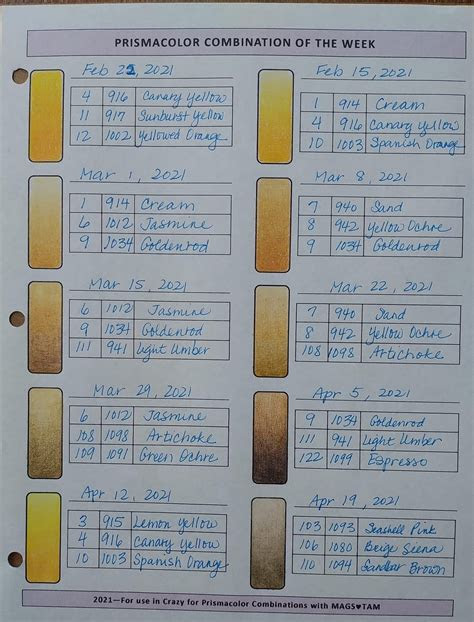 PRISMACOLOR COMBINATION OF THE WEEK
Feb 22, 2021
4 916 Canary Yellow
11 917 Sunburst Yellow
12 1002 Yellowed Orange
Feb 15, 2021
1 914 Cream
4 916 Canary Yellow
10 1003 Spanish Orange
Mar 1, 2021
1 914 Cream
6 1012 Jasmine
9 1034 Goldenrod
Mar 8, 2021
7 940 Sand
8 942 Yellow Ochre
9 1034 Goldenrod
Mar 15, 2021
6 1012 Jasmine
9 1034 Goldenrod
111 941 Light Umber
Mar 22, 2021
7 940 Sand
8 942 Yellow Ochre
108 1098 Artichoke
Mar 29, 2021
6 1012 Jasmine
108 1098 Artichoke
109 1091 Green Ochre
Apr 5, 2021
9 1034 Goldenrod
111 941 Light Umber
122 1099 Espresso
Apr 12, 2021
3 915 Lemon Yellow
4 916 Canary Yellow
10 1003 Spanish Orange
Apr 19, 2021
103 1093 Seashell Pink
106 1080 Beige Siena
110 1094 Sandbar Brown
2021—For use in Crazy for Prismacolor Combinations with MAGS♥TAM